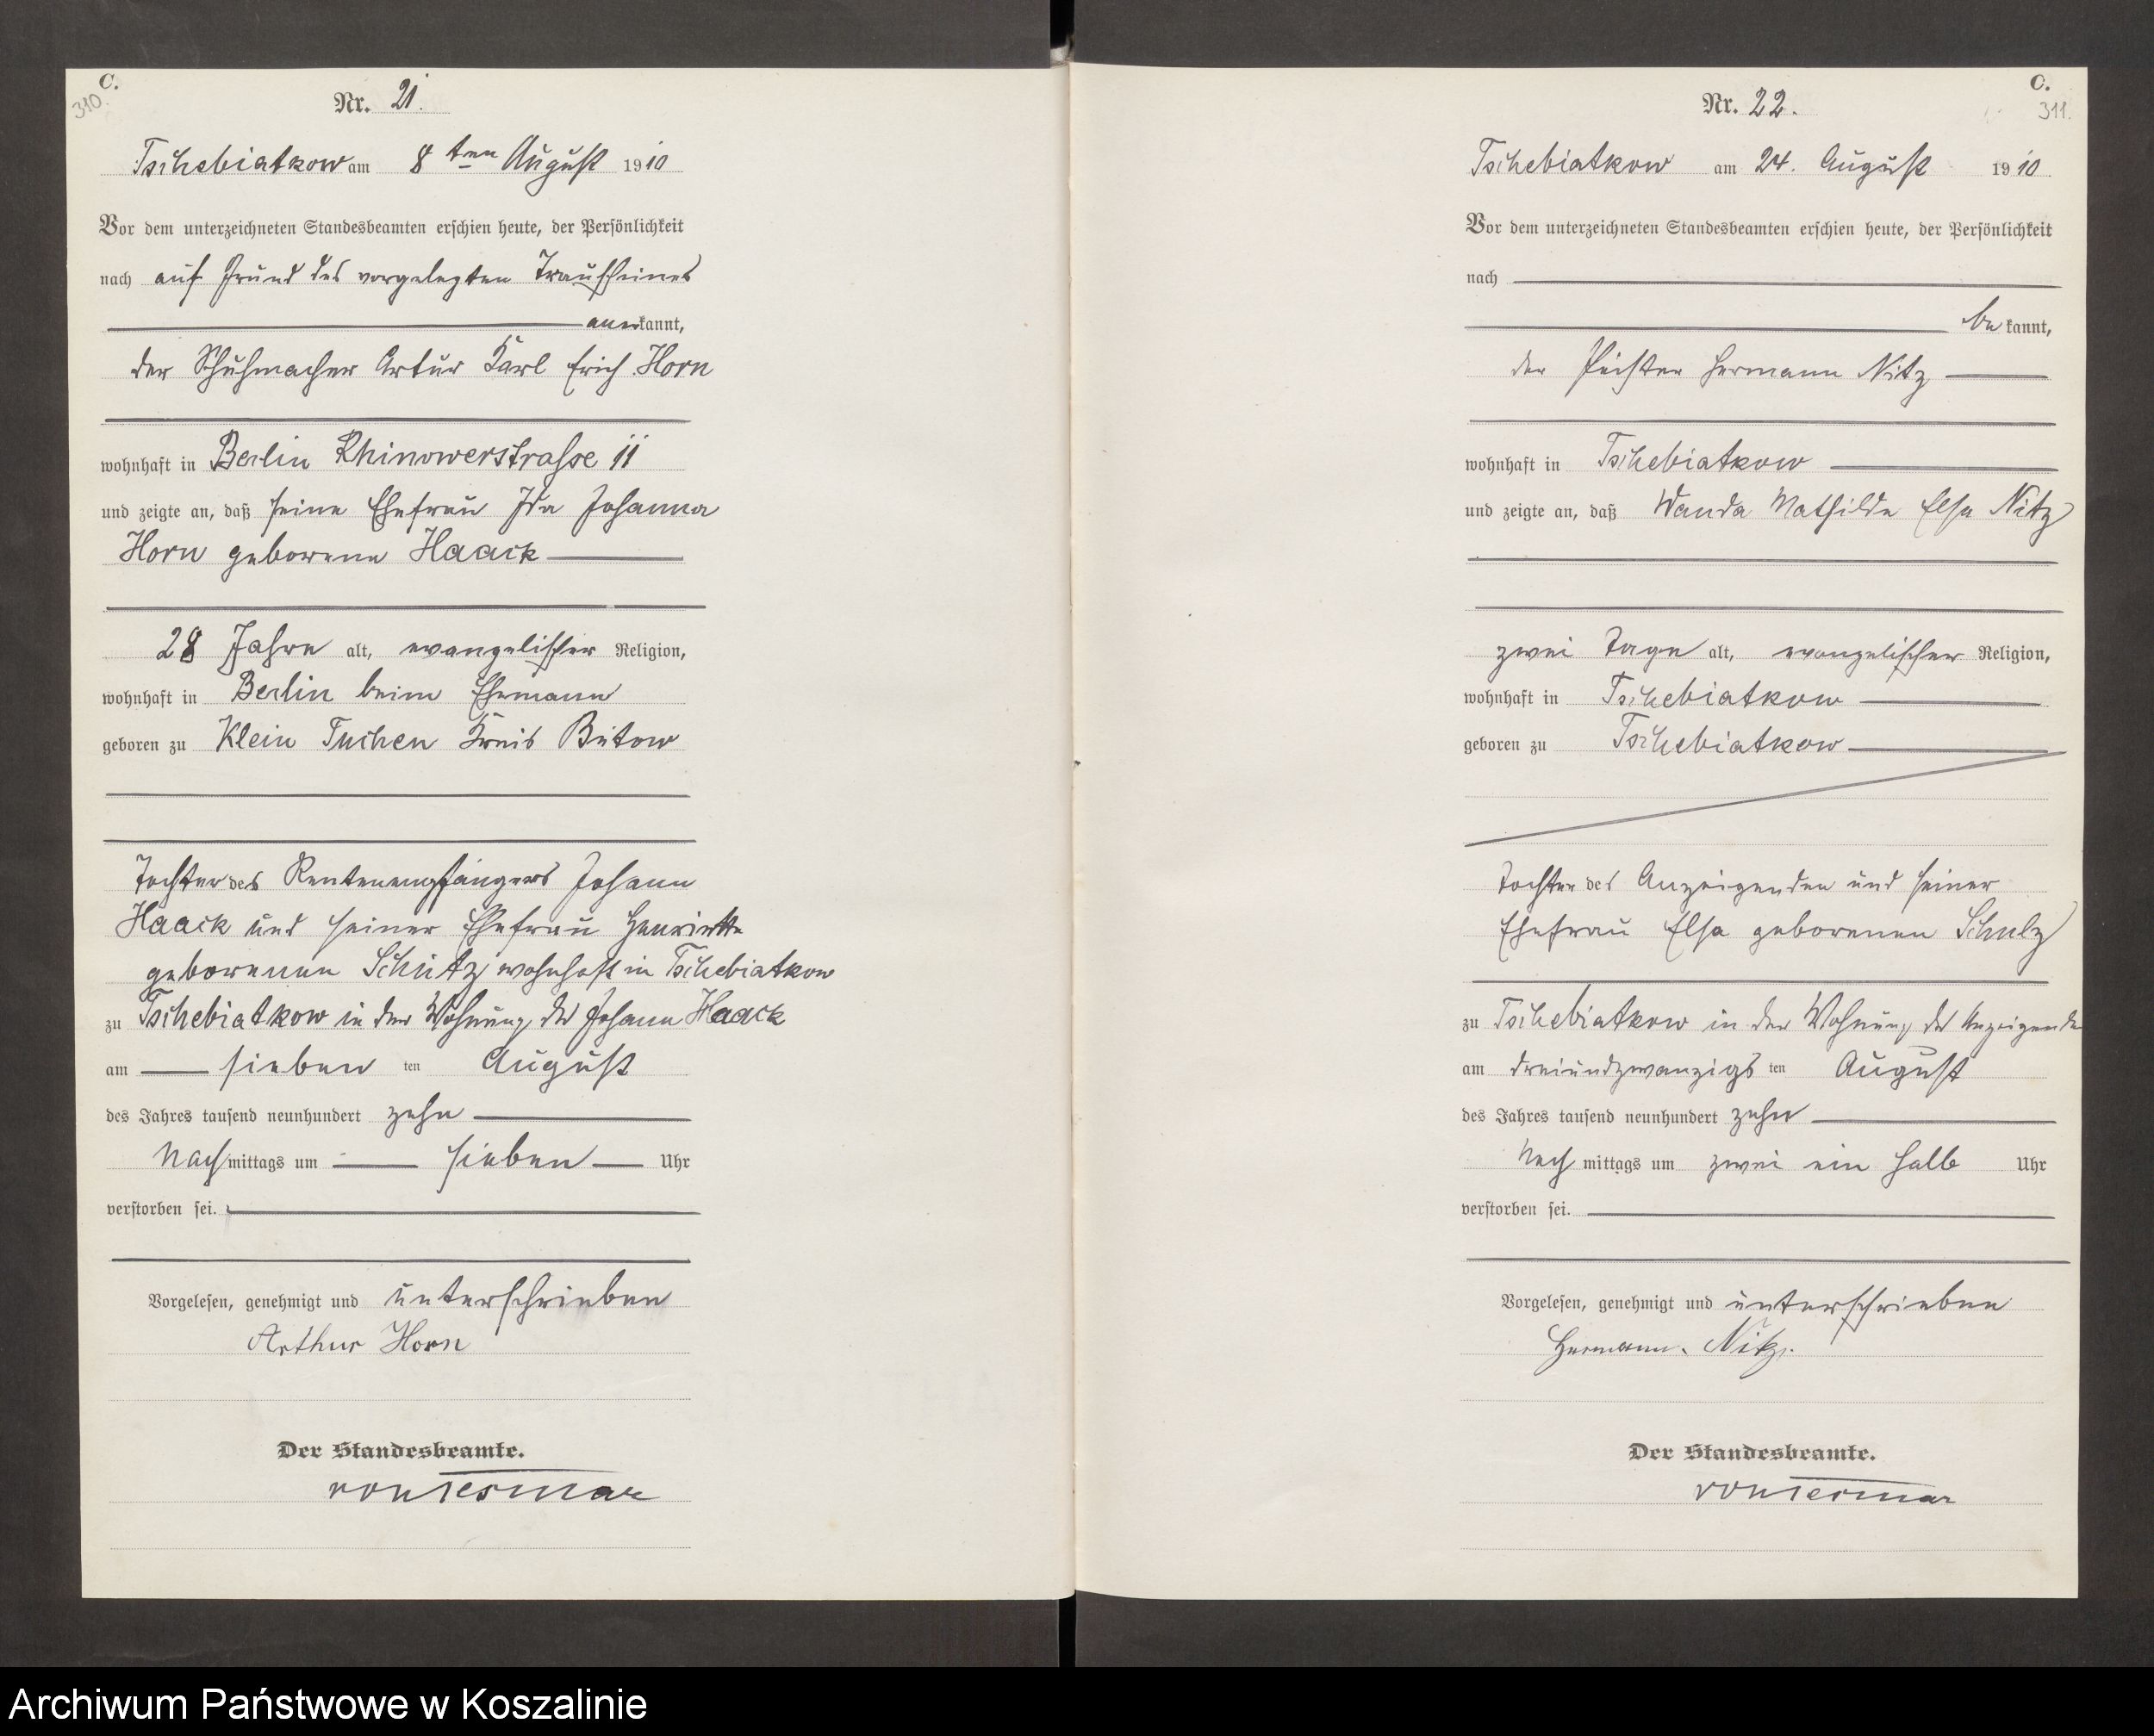 C.
310.
Nr. 21.
Tschebiatkow am 8ten August 1910
Vor dem unterzeichneten Standesbeamten erschien heute, der Persönlichkeit
nach auf Grund des vorgelegten Trauscheines
anerkannt,
der Schuhmacher Artur Karl Erich Horn
wohnhaft in Berlin Rhinowerstrasse 11
und zeigte an, daß seine Ehefrau Ida Johanna
Horn geborene Haack
28 Jahre alt, evangelischer Religion,
wohnhaft in Berlin beim Ehemann
geboren zu Klein Tuchen Kreis Bütow
Tochter des Rentenempfängers Johann
Haack und seiner Ehefrau Henriette
geborenen Schütz wohnhaft in Tschebiatkow
zu Tschebiatkow in der Wohnung des Johann Haack
am sieben ten August
des Jahres tausend neunhundert zehn
Nachmittags um sieben Uhr
verstorben sei.
Vorgelesen, genehmigt und unterschrieben
Arthur Horn
Der Standesbeamte.
von Tesmar
C.
311.
Nr. 22.
Tschebiatkow am 24. August 1910
Vor dem unterzeichneten Standesbeamten erschien heute, der Persönlichkeit
nach
be kannt,
der Hermann Nitz
wohnhaft in Tschebiatkow
und zeigte an, daß Wanda Mathilde Elsa Nitz
zwei Tage alt, evangelischer Religion,
wohnhaft in Tschebiatkow
geboren zu Tschebiatkow
Tochter des Anzeigenden und seiner
Ehefrau Elsa geborenen Schulz
zu Tschebiatkow in der Wohnung des Anzeigenden
am dreiundzwanzigs ten August
des Jahres tausend neunhundert zehn
Nach mittags um zwei ein halb Uhr
verstorben sei.
Vorgelesen, genehmigt und unterschrieben
Hermann Nitz.
Der Standesbeamte.
von Tesmar
Archiwum Państwowe w Koszalinie